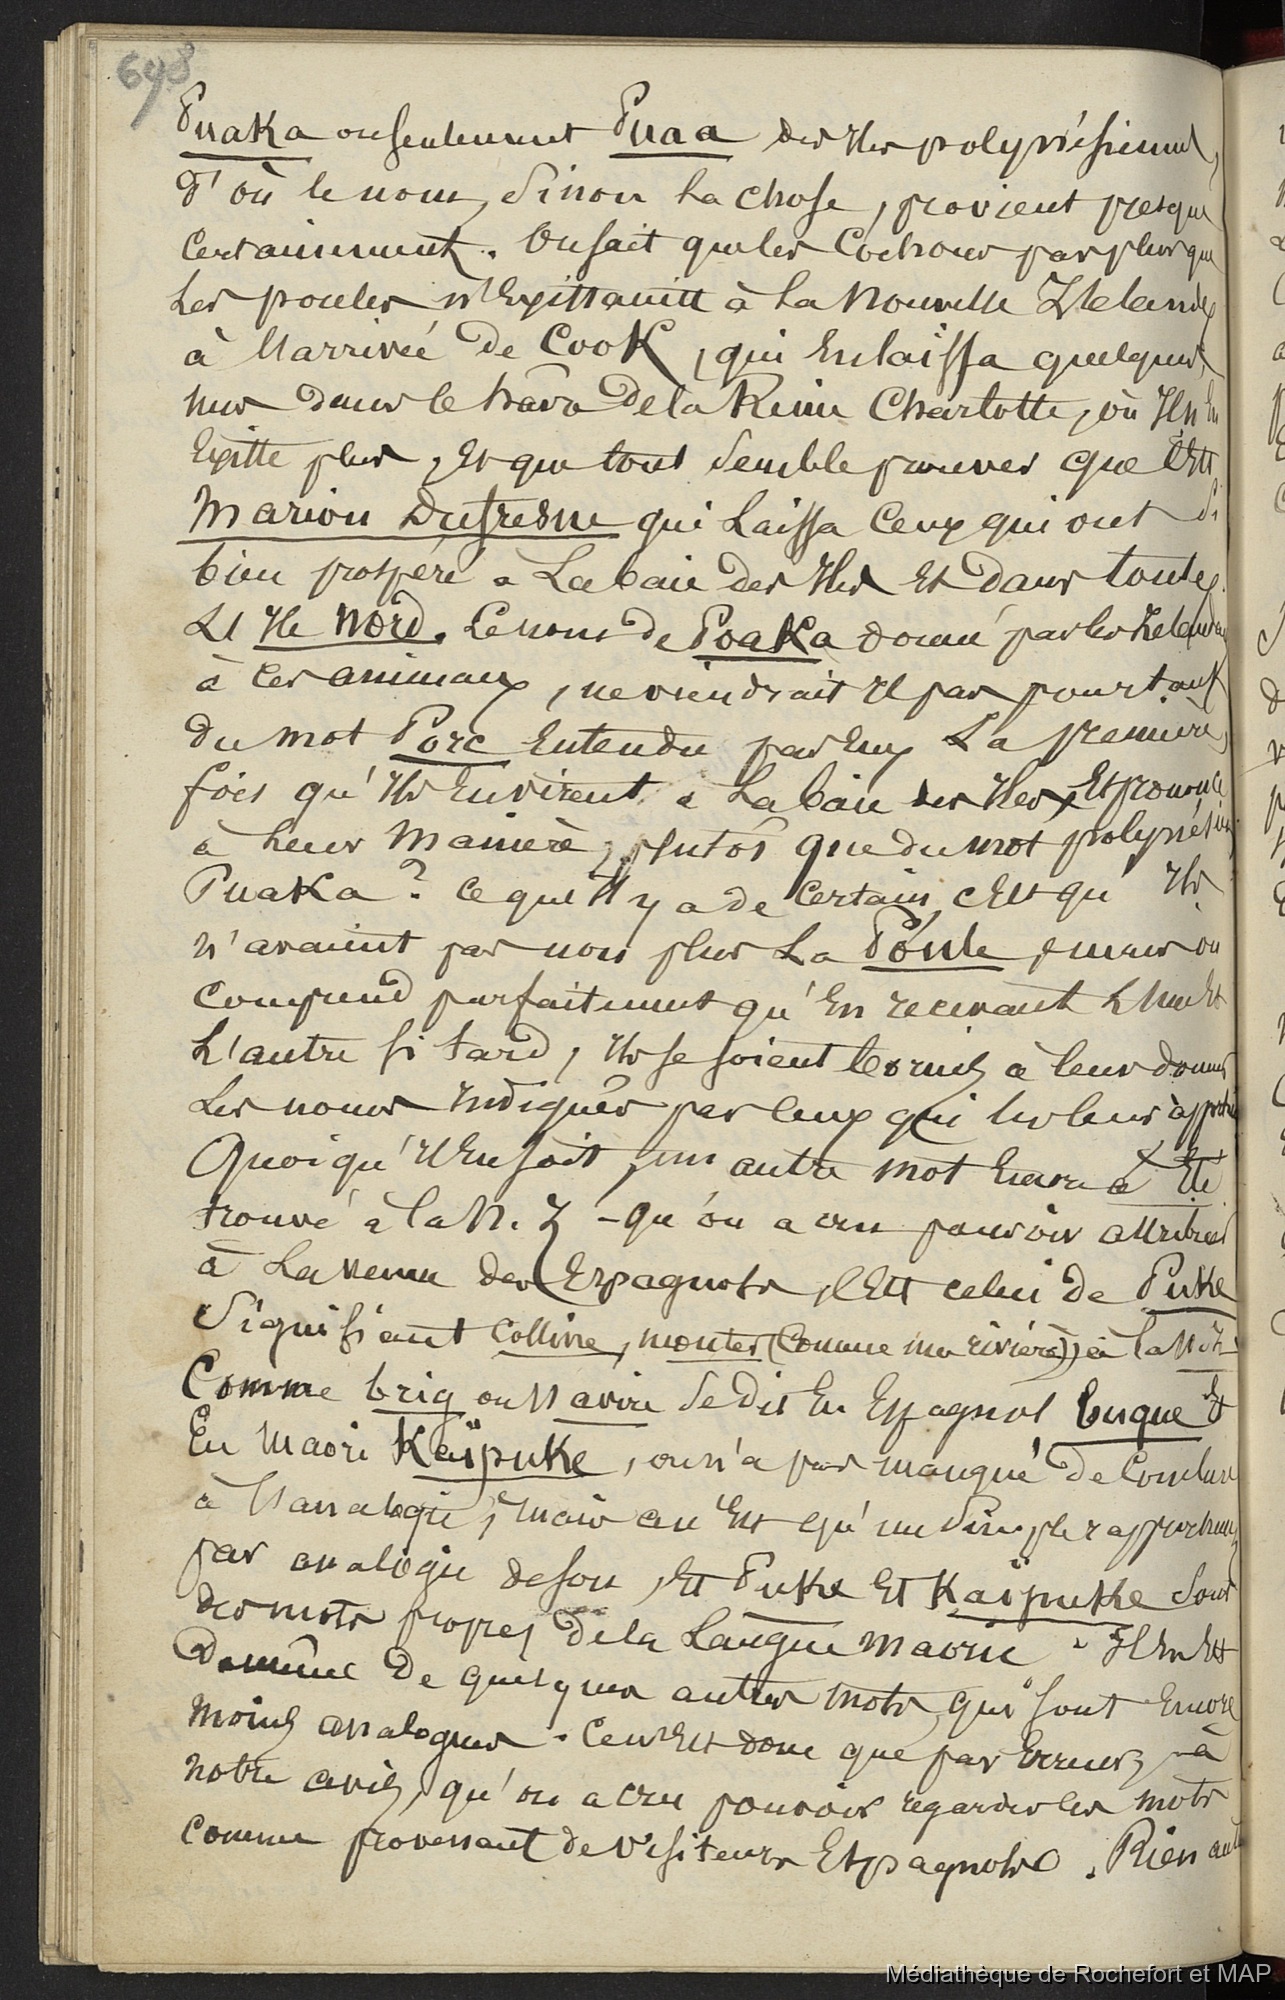 698
Puaka ou seulement Puaa des Iles polynésiennes,
d'où le nom, sinon la chose, provient presque
certainement. On sait que les Cochons pas plus que
les poules n'Existaient à la Nouvelle Zelande
à l'arrivée de Cook, qui En laissa quelques
uns dans le hâvre de la Reine Charlotte, où Il n'En
Existe plus, Et que tout semble prouver que C'Est
Marion Dufresne qui laissa Ceux qui ont si
bien prospéré à La baie des Iles Et dans toute
L'Ile Nord. Le nom de Poaka donné par les Zelandais
à ces animaux, ne viendrait Il pas pourtant
du mot Porc Entendu par Eux La première
fois qu'Ils En virent à La baie des Iles, Et prononcé
à leur Manière, plutôt que du mot polynésien
Puaka? Ce qu'Il y a de Certain, c'Est qu'Ils
n'avaient pas non plus La Poule, mais on
comprend parfaitement qu'En recevant L'un Et
L'autre si tard, Ils se soient bornés à leur donner
Les noms Indiqués par Ceux qui les leur apportaient
Quoiqu'Il En soit, un autre mot Encore a Été
trouvé à la N. Z - qu'on a cru pouvoir attribuer
à La venue des Espagnols, C'Est celui de Puke
Signifiant Colline, monter (Comme une rivière) à la N. Z.
Comme brig ou Navire se dit En Espagnol buque Et
En Maori Kaïpuke, on n'a pas manqué de Conclure
à l'analogie, mais ce n'Est qu'un Simple rapprochement
par analogie de son, Et Puke Et Kaïpuke sont
des mots propres de la Langue Maorie. Il En Est
de même de quelques autres mots qui sont Encore
Moins analogues. Ce n'Est donc que par Erreur, à
notre avis, qu'on a cru pouvoir regarder les mots
comme provenant de Visiteurs Espagnols. Rien
Médiathèque de Rochefort et MAP